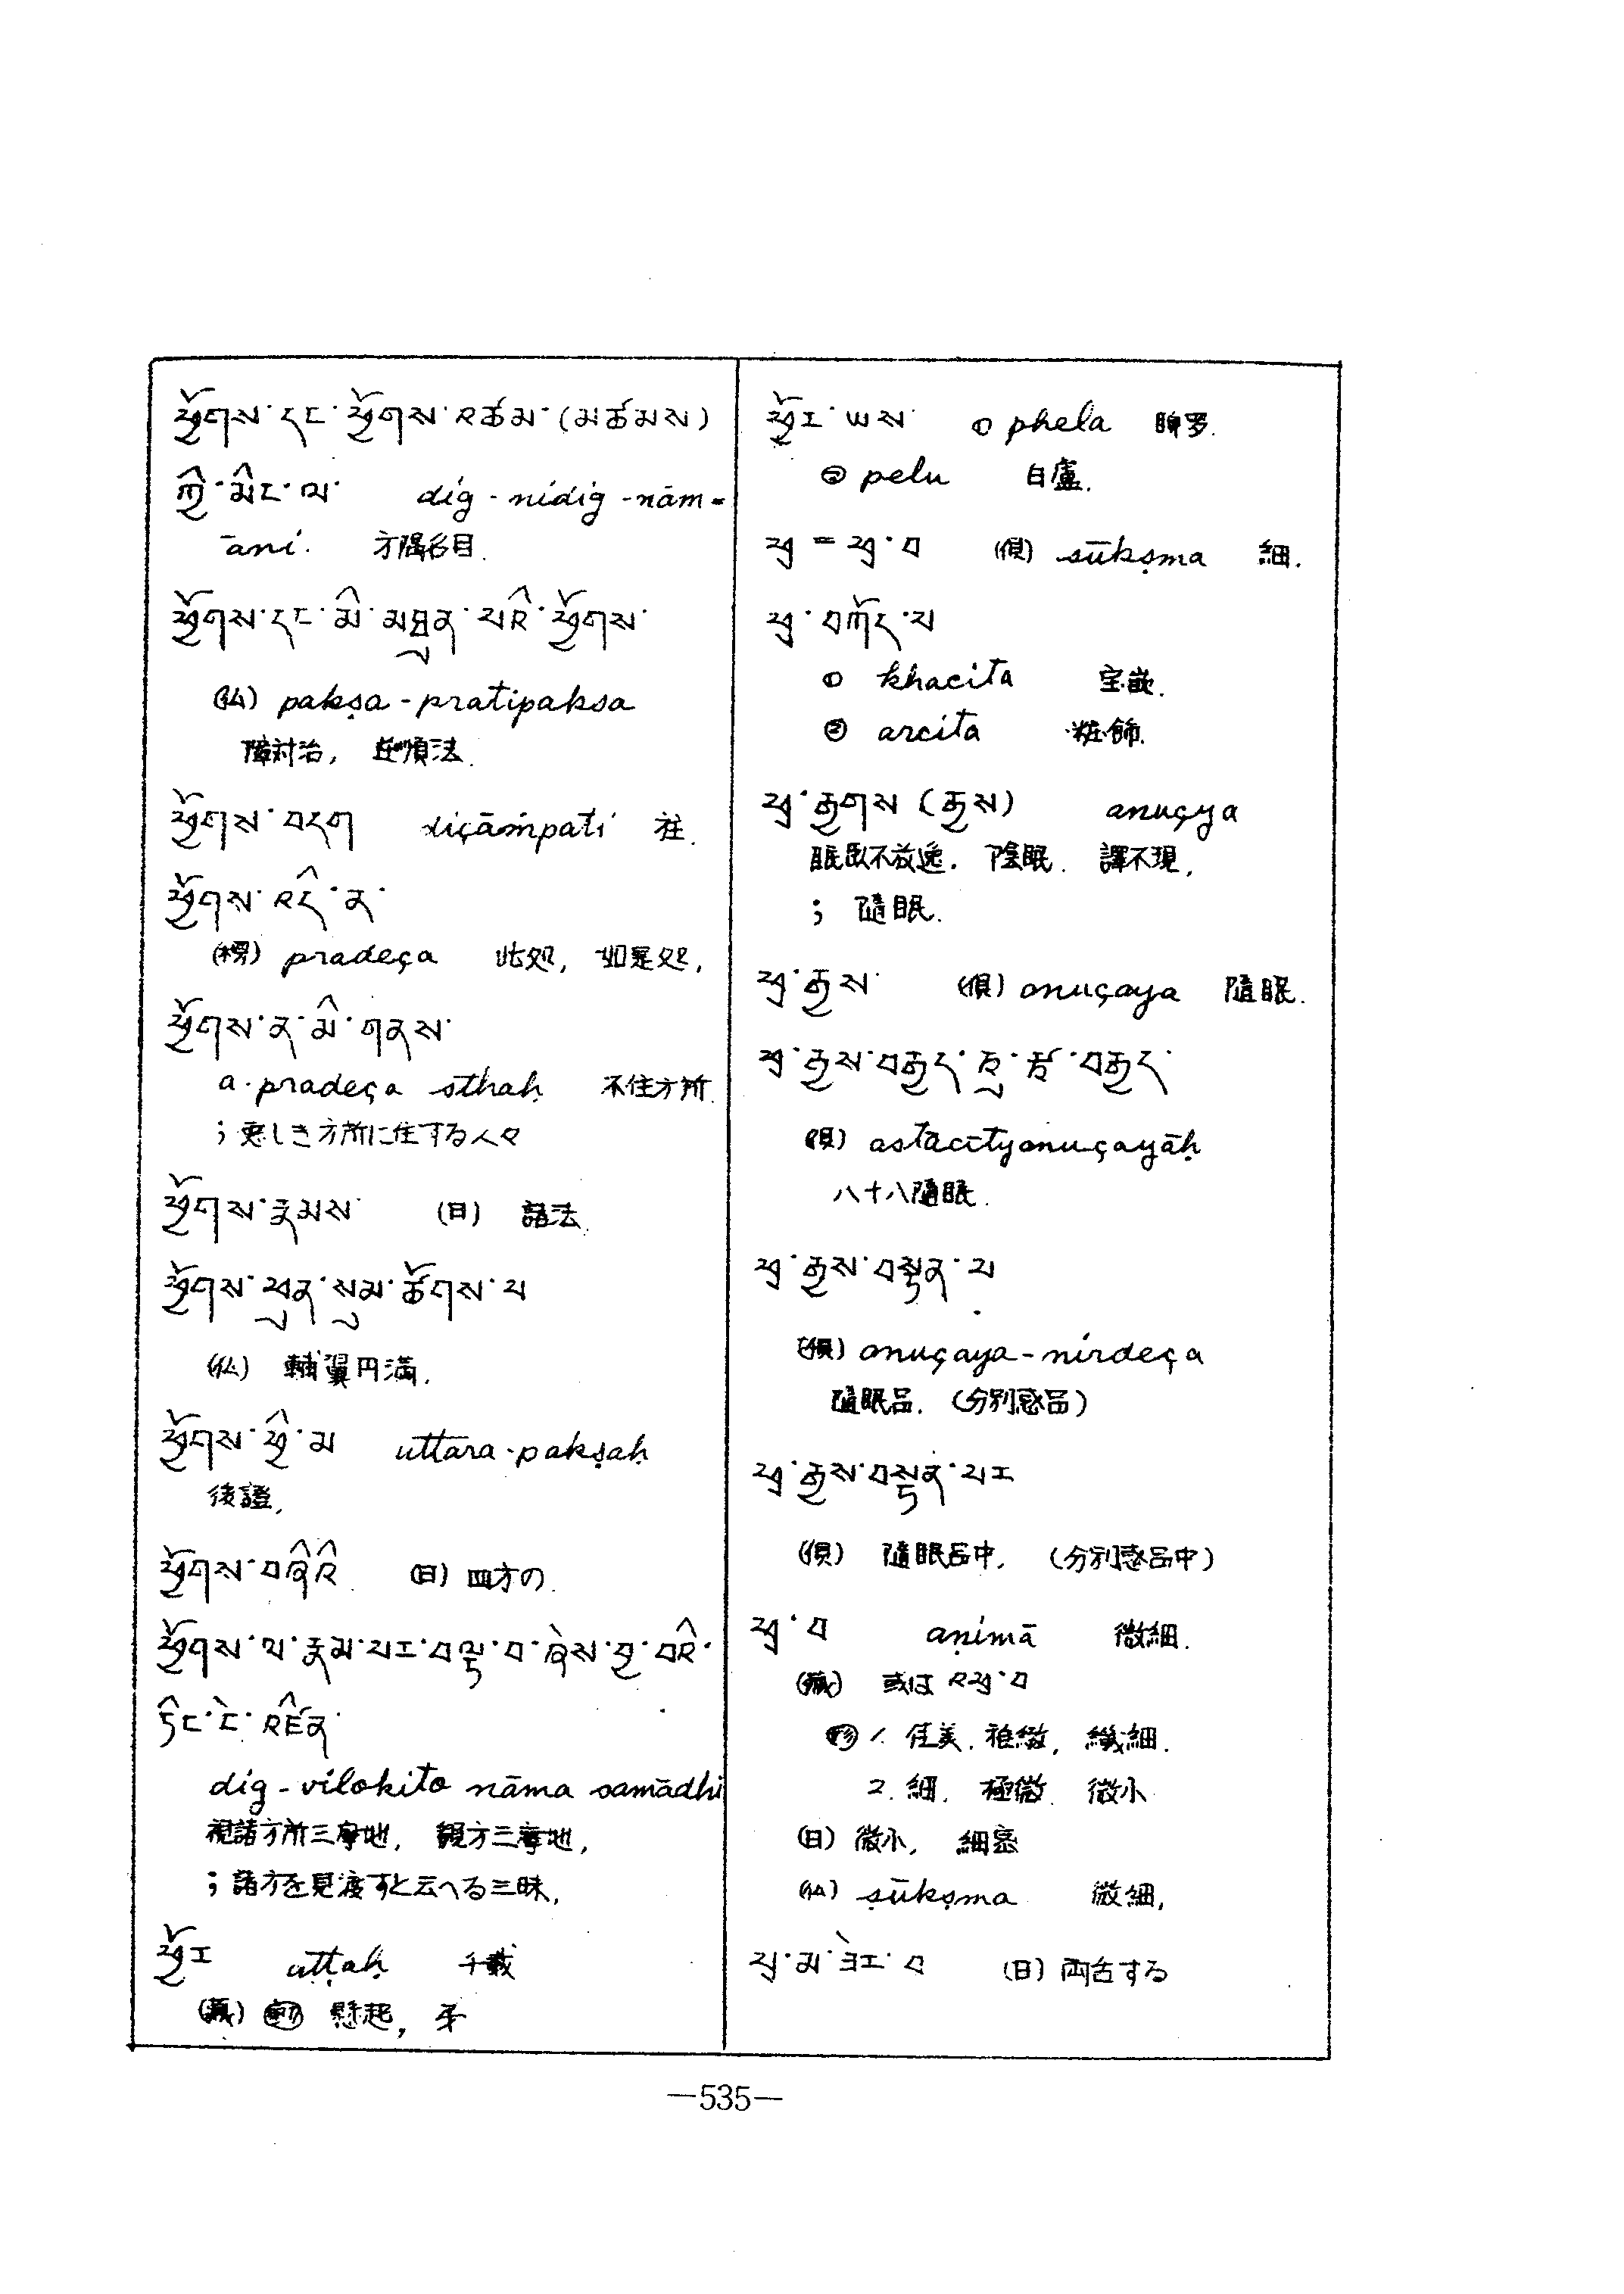 ཕྱོགས་དང་ཕྱོགས་འཚམ་(མཚམས)
ཀྱི་མིང་ལ་ dig-nidig-nām=
āni. 方隅名目.
ཕྱོགས་དང་མི་མཐུན་པའི་ཕྱོགས་
(仏) pakṣa-pratipaksa
障対治, 違順法.
ཕྱོགས་བདག diçāṁpati 柱.
ཕྱོགས་འདི་ན་
(楞) pradeça 此処, 如是処,
ཕྱོགས་ན་མི་གནས་
a-pradeça sthaḥ 不住方所.
; 悪しき方所に住する人々
ཕྱོགས་རྣམས་ (日) 諸法.
ཕྱོགས་ཕུན་སུམ་ཚོགས་པ
(仏) 輔翼円満.
ཕྱོགས་ཕྱི་མ uttara-pakṣaḥ
後證,
ཕྱོགས་བཞིའི (日) 四方の.
ཕྱོགས་ལ་རྣམ་པར་བལྟ་བ་ཞེས་བྱ་བའི་
ཏིང་ངེ་འཛིན་
dig-vilokito nāma samādhi
視諸方所三摩地, 観方三摩地,
; 諸方を見渡すと云へる三昧,
ཕྱོར uṭṭaḥ 千載
(蔵) 懸起, 矛
ཕྱོར་ཡས་ ① phela 睥罗.
② pelu 白盧.
ཕྲ = ཕྲ་བ (倶) sūkṣma 細.
ཕྲ་བཀོད་པ
① khacita 宝嵌.
② arcita 粧飾.
ཕྲ་རྒྱགས (རྒྱས) anuçya
眠臥不放逸. 陰眠. 譯不現,
; 隨眠.
ཕྲ་རྒྱས་ (倶) anuçaya 隨眠.
ཕྲ་རྒྱས་བརྒྱད་ཅུ་རྩ་བརྒྱད་
(倶) astācītyanuçayāḥ
八十八隨眠.
ཕྲ་རྒྱས་བསྟན་པ
(倶) anuçaya-nirdeça
隨眠品. (分別惑品)
ཕྲ་རྒྱས་བསྟན་པར
(倶) 隨眠品中. (分別惑品中)
ཕྲ་བ aṇimā 微細.
(蔵) 或は འཕྲ་བ
1. 佳美. 稚緻, 纖細.
2. 細. 極微. 微小
(日) 微小, 細密
(仏) ṣūkṣma 微細,
ཕྲ་མ་ཟེར་བ (日) 両舌する
—535—